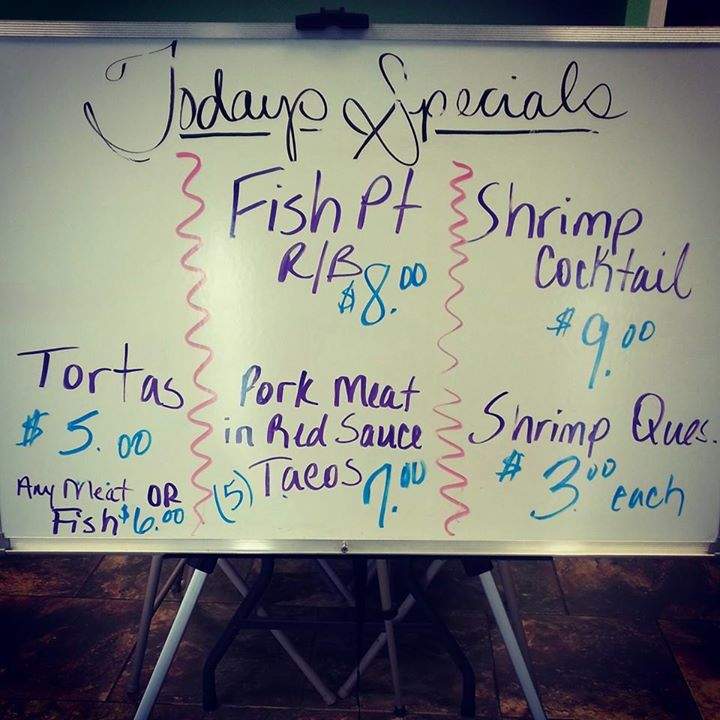 Todays Specials
Tortas
$5.00
Any Meat OR
Fish $6.00
Fish Pt
R/B
$8.00
Pork Meat
in Red Sauce
(5) Tacos 7.00
Shrimp
Cocktail
$9.00
Shrimp Ques.
$3.00 each